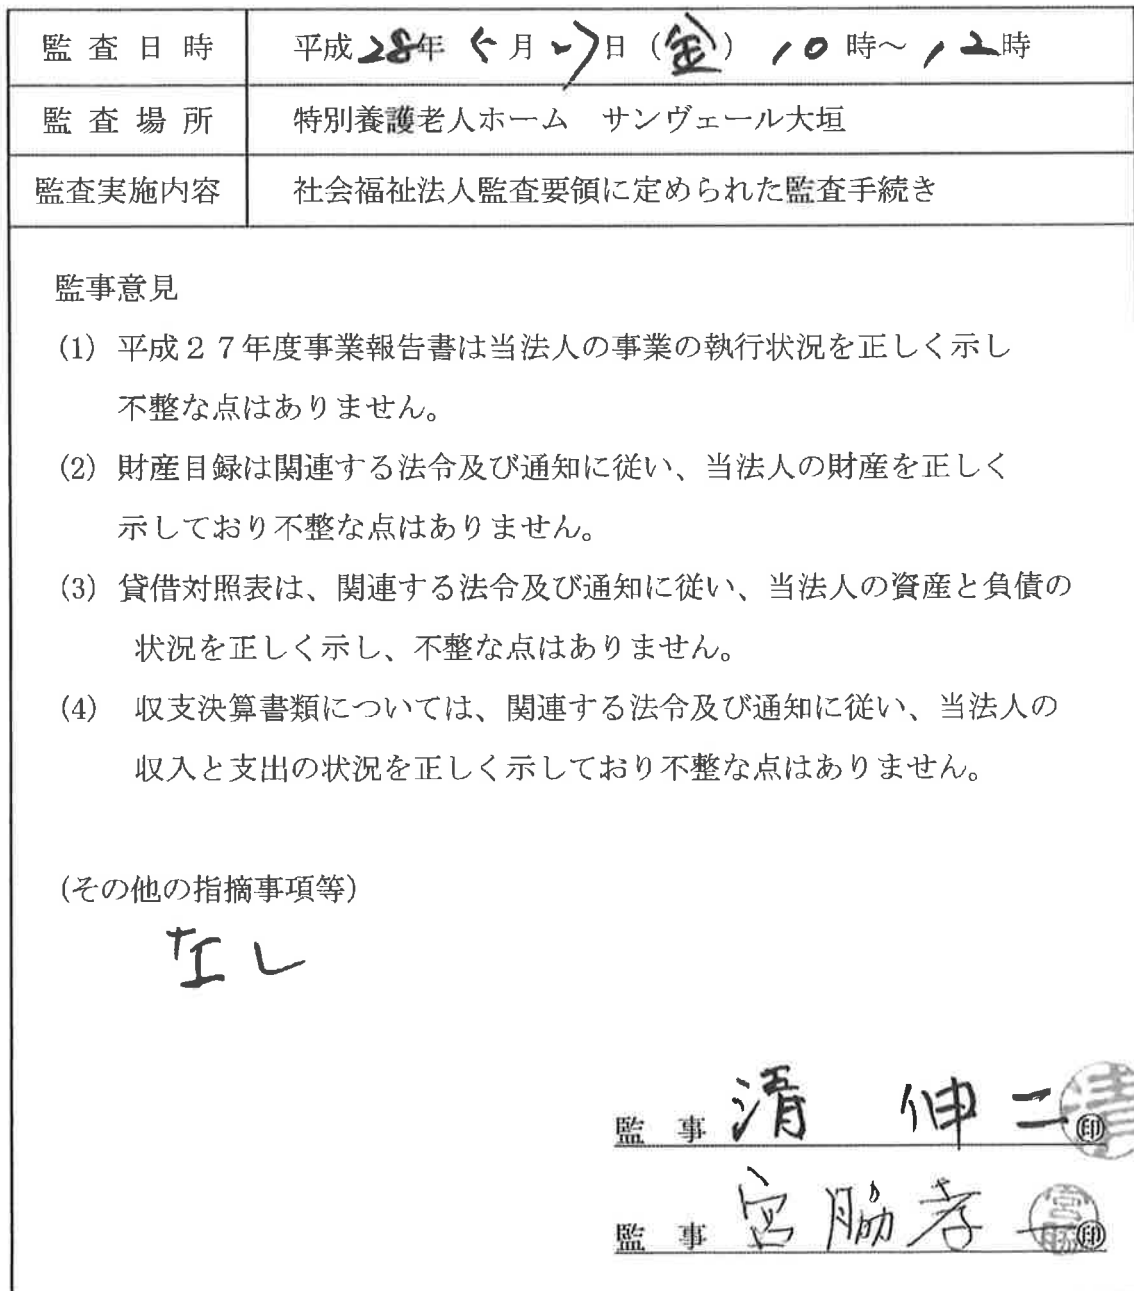 監査日時 平成28年5月27日(金) 10時～12時
監査場所 特別養護老人ホーム サンヴェール大垣
監査実施内容 社会福祉法人監査要領に定められた監査手続き
監事意見
(1) 平成27年度事業報告書は当法人の事業の執行状況を正しく示し
不整な点はありません。
(2) 財産目録は関連する法令及び通知に従い、当法人の財産を正しく
示しており不整な点はありません。
(3) 貸借対照表は、関連する法令及び通知に従い、当法人の資産と負債の
状況を正しく示し、不整な点はありません。
(4) 収支決算書類については、関連する法令及び通知に従い、当法人の
収入と支出の状況を正しく示しており不整な点はありません。
(その他の指摘事項等)
なし
監事 清 伸二 ㊞ 清
監事 宮脇孝一 ㊞ 宮脇